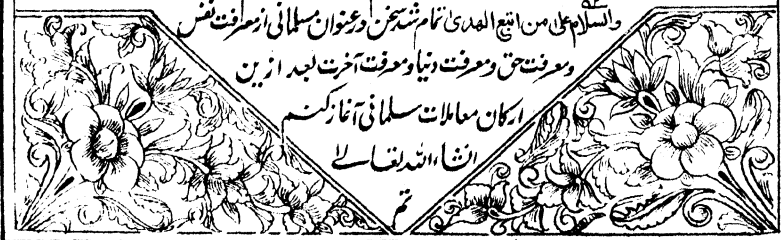 والسلام علی من اتبع الهدی تمام شد سخن در عنوان مسلمانی از معرفت نفس
و معرفت حق و معرفت دنیا و معرفت آخرت بعد ازین
ارکان معاملات مسلمانی آغاز کنم
انشاء الله تعالے
تم